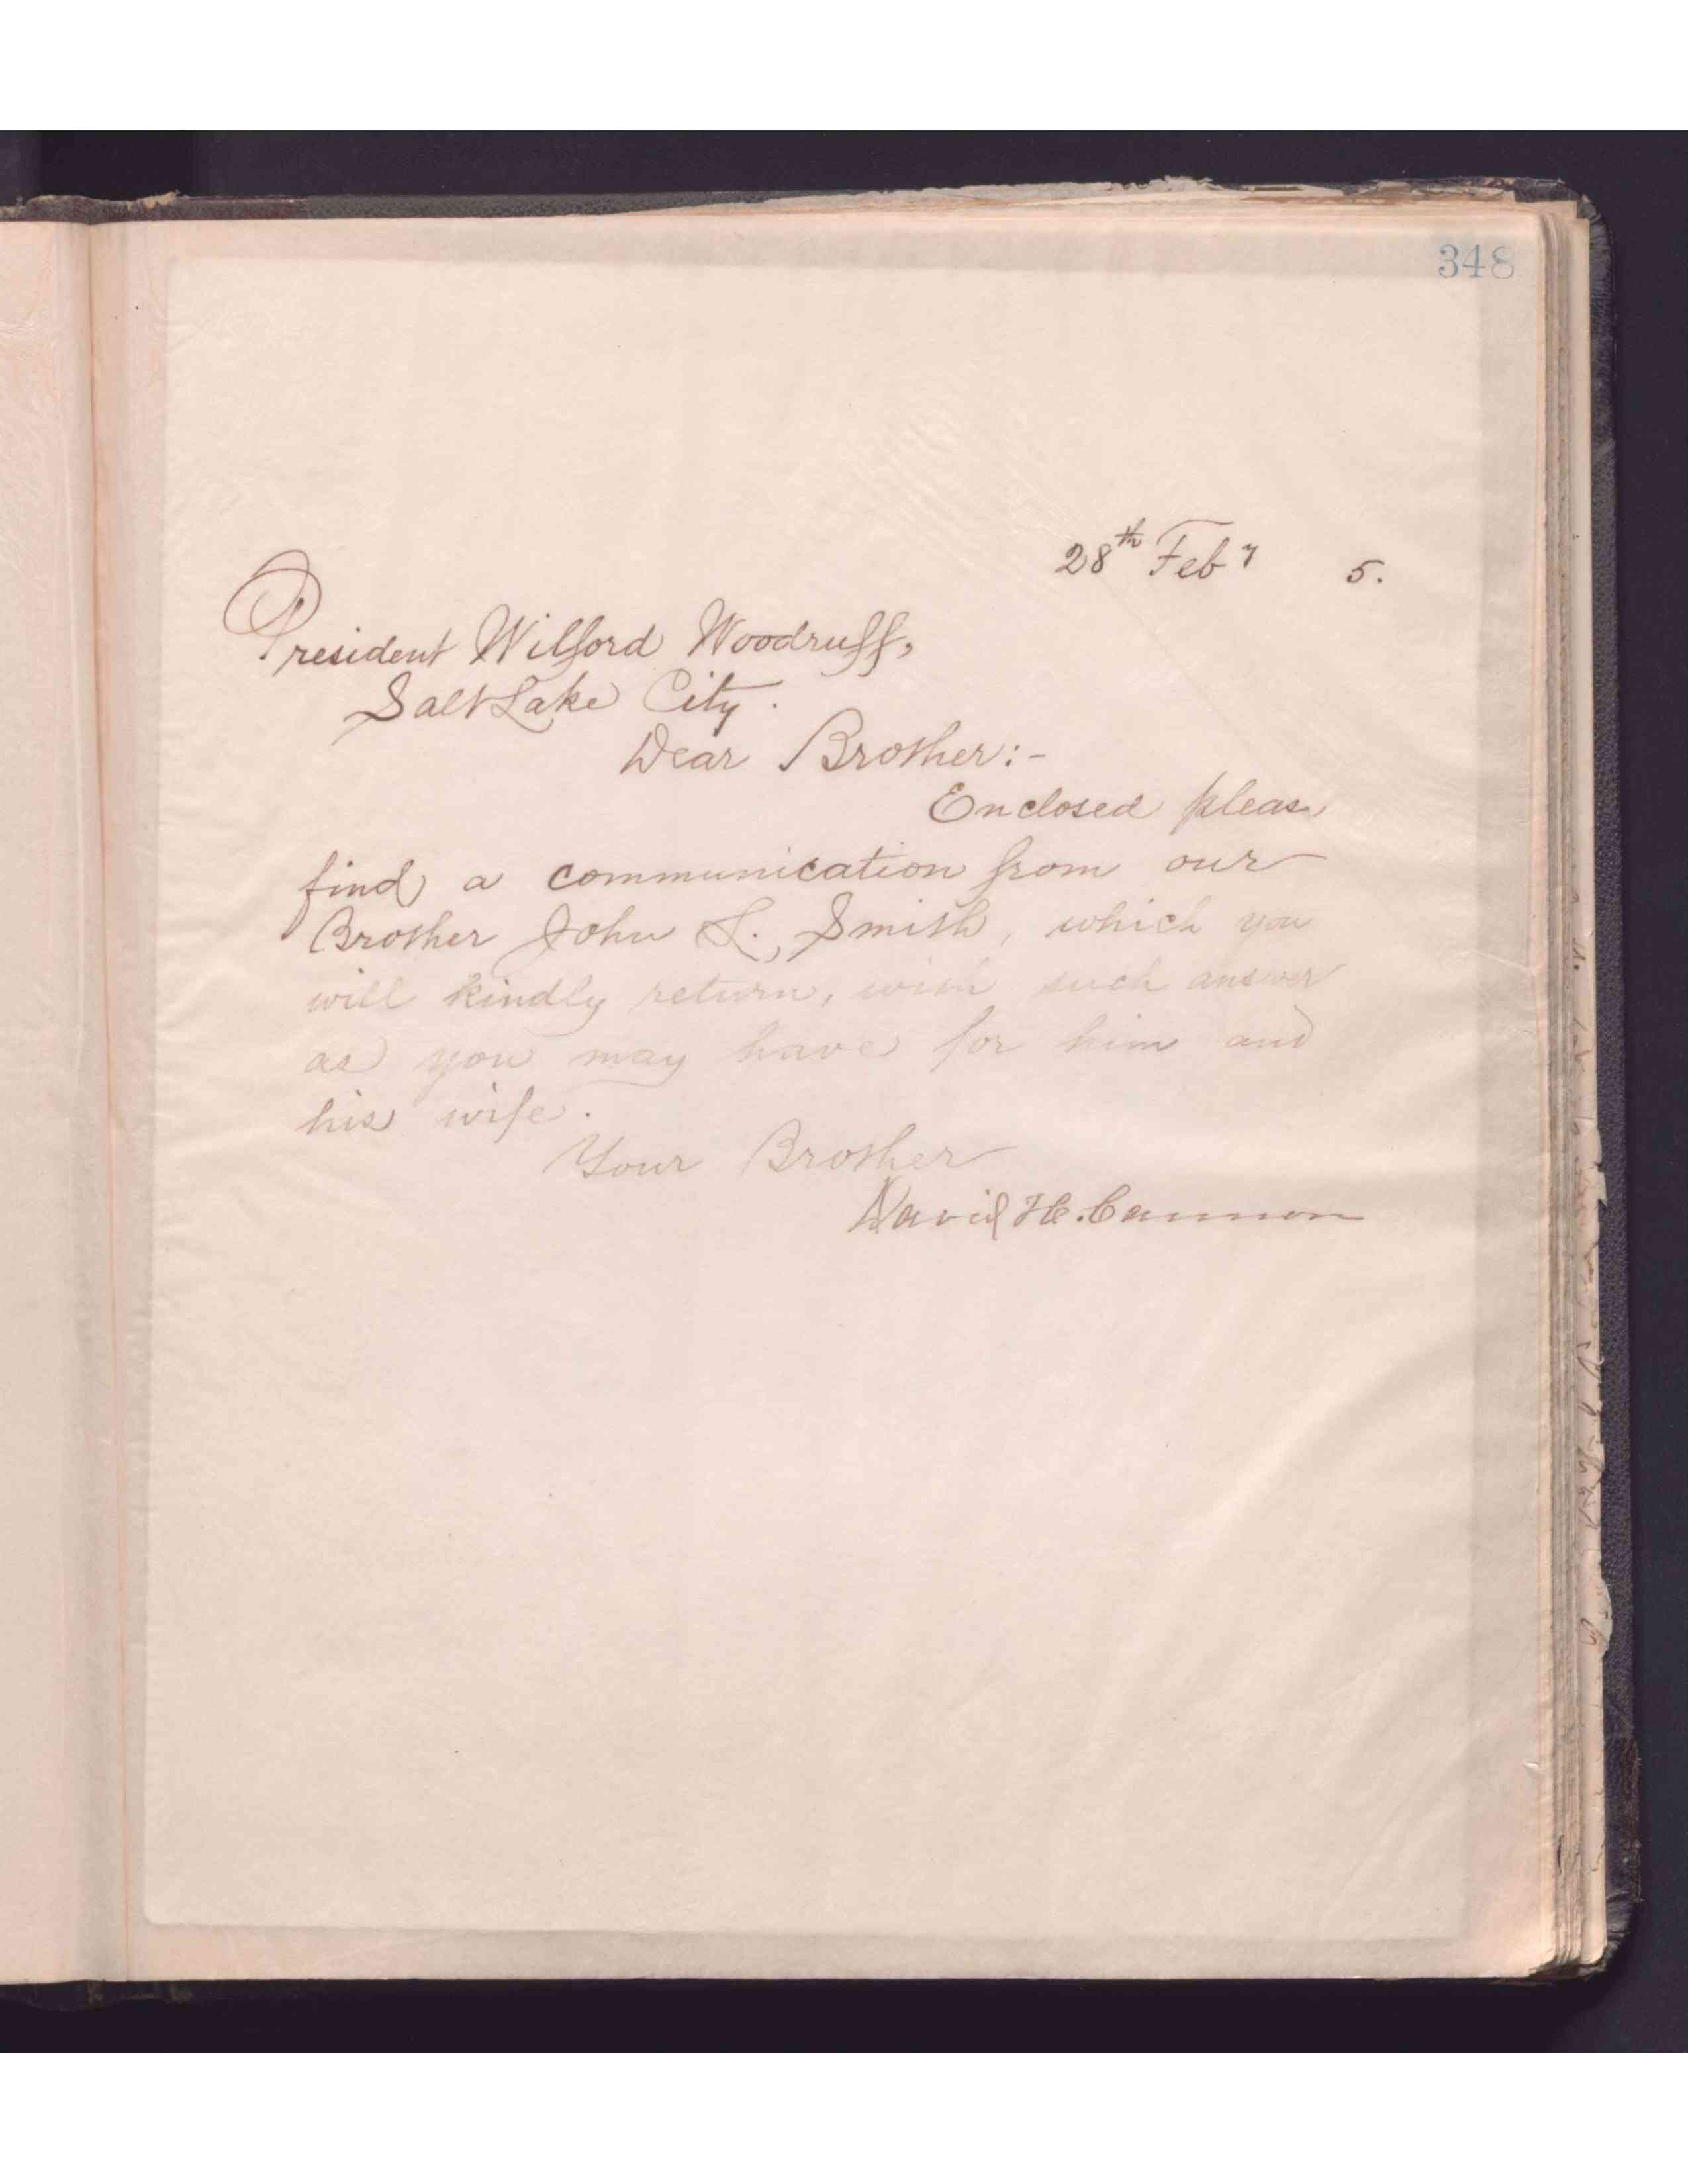 348
28th Feby 5.
President Wilford Woodruff,
Salt Lake City.
Dear Brother:-
Enclosed please
find a communication from our
Brother John L. Smith, which you
will kindly return, with such answer
as you may have for him and
his wife.
Your Brother
David H. Cannon